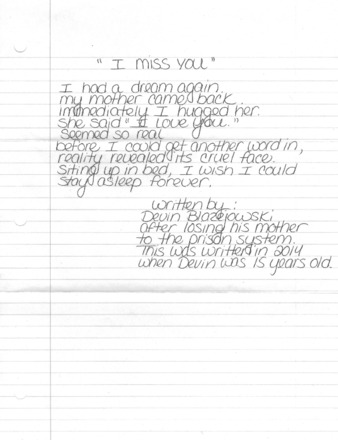 " I miss you "
I had a dream again.
my mother came back.
immediately I hugged her.
she said " I love you."
seemed so real
before I could get another word in,
reality revealed its cruel face.
Siting up in bed, I wish I could
stay asleep forever.
written by:
Devin Blazejowski
after losing his mother
to the prison system.
This was written in 2014
when Devin was 15 years old.